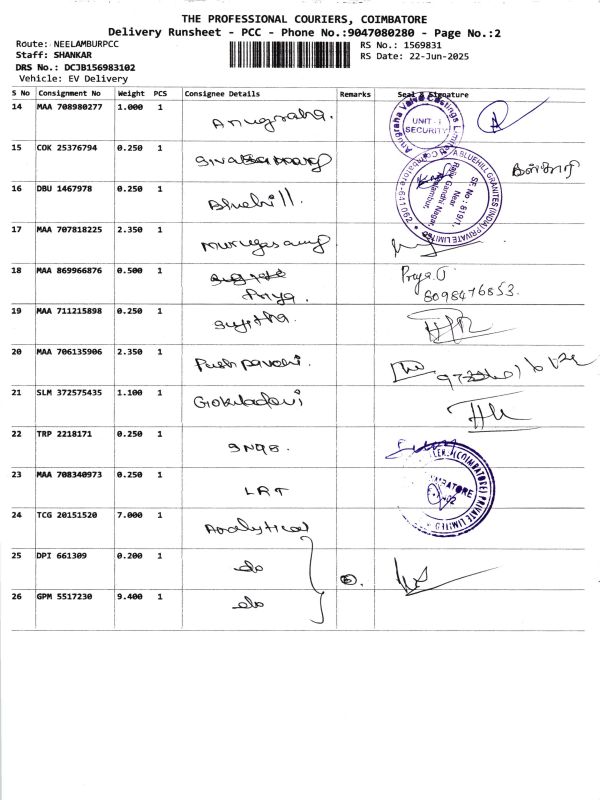 THE PROFESSIONAL COURIERS, COIMBATORE
Delivery Runsheet - PCC - Phone No.:9047080280 - Page No.:2
Route: NEELAMBURPCC
Staff: SHANKAR
DRS No.: DCJB156983102
Vehicle: EV Delivery
RS No.: 1569831
RS Date: 22-Jun-2025
S No Consignment No Weight PCS Consignee Details Remarks Seal & Signature
14 MAA 708980277 1.000 1 Anugraha.
Anugraha Valve Castings Limited
UNIT - I
SECURITY
15 COK 25376794 0.250 1
16 DBU 1467978 0.250 1 Bluehill.
A BLUEHILL GRANITES (INDIA) PRIVATE LIMITED
SF. No : 619/1,
Near
Rajiv Gandhi Nagar,
Neelambur,
Coimbatore-641062
17 MAA 707818225 2.350 1 Murugesamy
18 MAA 869966876 0.500 1 Priya.
Priya J
8098476853.
19 MAA 711215898 0.250 1 Sujitha.
20 MAA 706135906 2.350 1 Pushpavathi.
21 SLM 372575435 1.100 1 Gokiladevi
22 TRP 2218171 0.250 1
23 MAA 708340973 0.250 1 LRT
(COIMBATORE) PRIVATE LIMITED
24 TCG 20151520 7.000 1 Analytical
25 DPI 661309 0.200 1 do
26 GPM 5517230 9.400 1 do